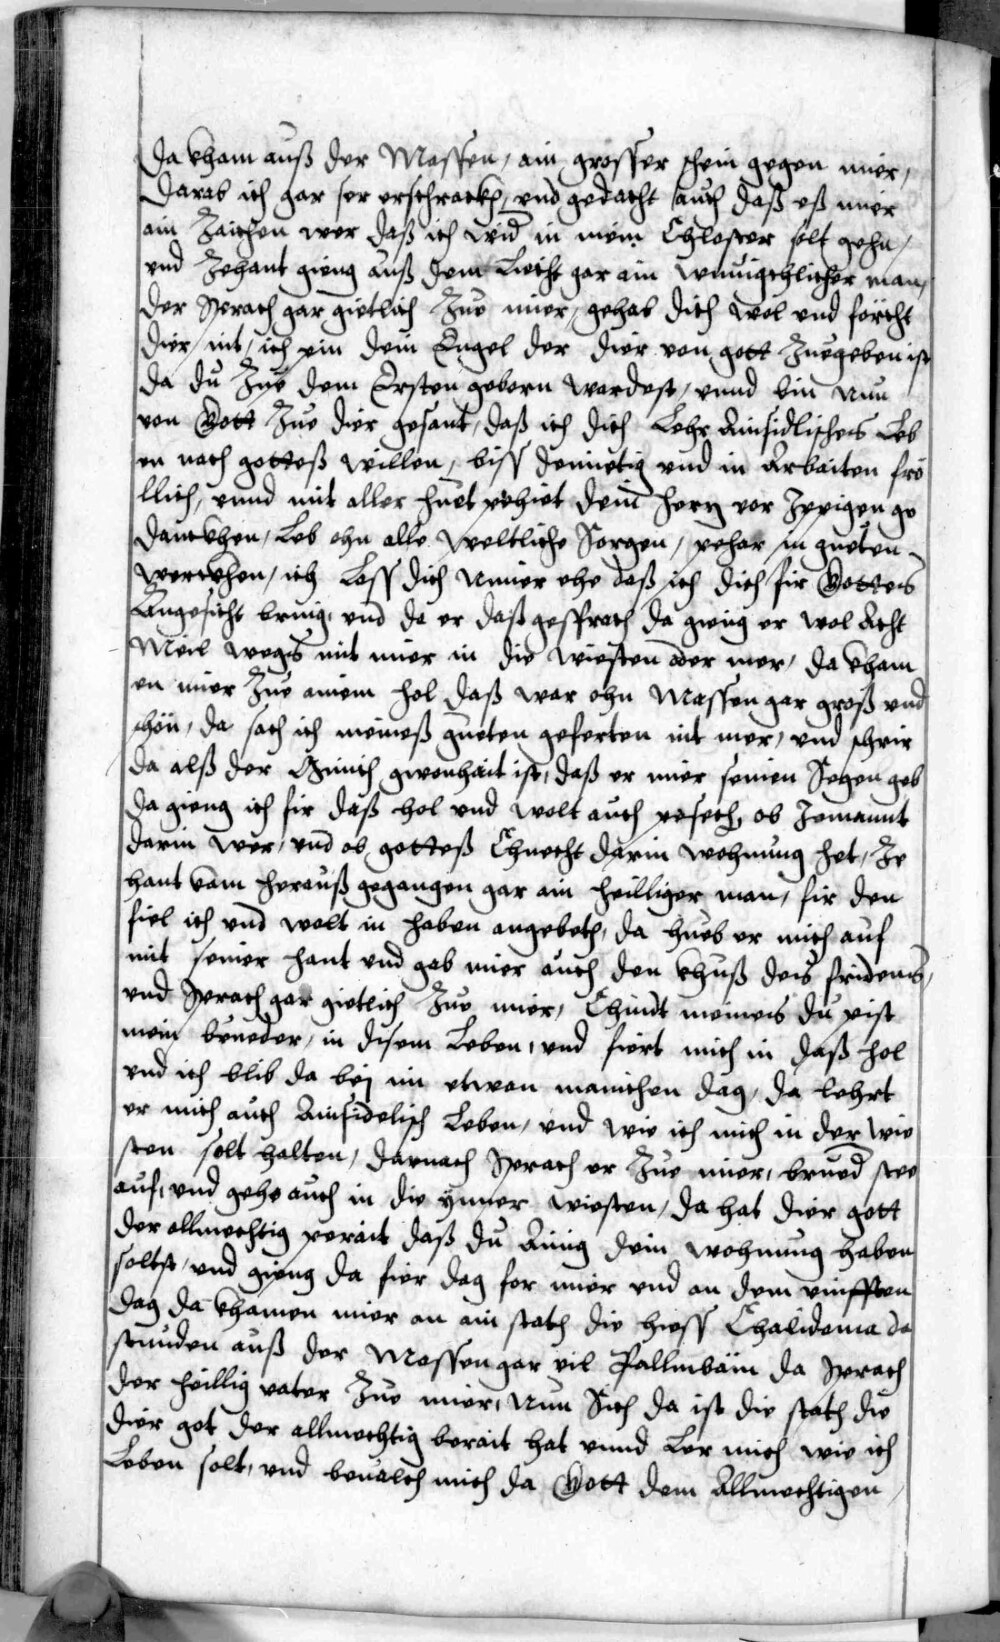 Da kham auß der Massen, ain grosser schein gegen mier,
Darab ich gar ser erschrackh, vnd gedacht auch daß eß mier
ain Zaichen wer daß ich wid in mein Chloster solt gehn,
vnd Zehant gieng auß dem Liecht gar ain wunigchlicher man,
der sprach gar gietlich Zue mier, gehab dich wol vnd förcht
dier nit, ich pin dein Engel der dier von gott Zuegeben ist
da du Zue dem Ersten geborn wardest, vnnd bin nun
von Gott Zue dier gesant, daß ich dich Lehr Ainsidlisches Leb
en nach gotteß willen, biss demietig vnd in Arbaiten frö
llich, vnnd mit aller huet pehiet dein herz vor Ippigen ge
danckhen, Leb ohn alle weltliche Sorgen, pehar in gueten
werckhen, ich Lass dich nimer ehe daß ich dich fir Gottes
Angesicht bring, vnd da er daß gesprach da gieng er wol Acht
Meil wegs mit mier in die wiesten oder mer, da kham
en mier Zue ainem hol daß war ohn Massen gar groß vnd
schön, da sach ich meineß gueten geferten nit mer, vnd schrir
da alß der Münich gwonhait ist, daß er mier seinen Segen geb
da gieng ich fir daß hol vnd wolt auch pesech, ob Jemannt
darin wer, vnd ob gotteß Chnecht darin wohnung het, Ze
hant kam herauß gegangen gar ain heilliger man, fir den
fiel ich vnd wolt in haben angebeth, da hueb er mich auf
mit seiner hant vnd gab mier auch den khuß des fridens,
vnd sprach gar gietlich Zue mier, Chindt meines du pist
mein brueder, in disem Leben, vnd fiert mich in daß hol
vnd ich blib da bej im etwen manichen dag, da lehrt
er mich auch Ainsidelisch Leben, vnd wie ich mich in der wie
sten solt halten, darnach sprach er Zue mier, brued stee
auf, vnd gehe auch in die ynner wiesten, da hat dier gott
der allmechtig perait daß du Ainig dein wohnung haben
soltst, vnd gieng da fier dag for mier vnd an dem vinfften
dag da khamen mier an ain stath die hiess Chalidoma da
stunden auß der Massen gar vil Pallmbäm da sprach
der heillig vater Zue mier, Nun Sich da ist die stath die
dier got der allmechtig berait hat vnnd Ler mich wie ich
Leben solt, vnd beualch mich da Gott dem Allmechtigen,